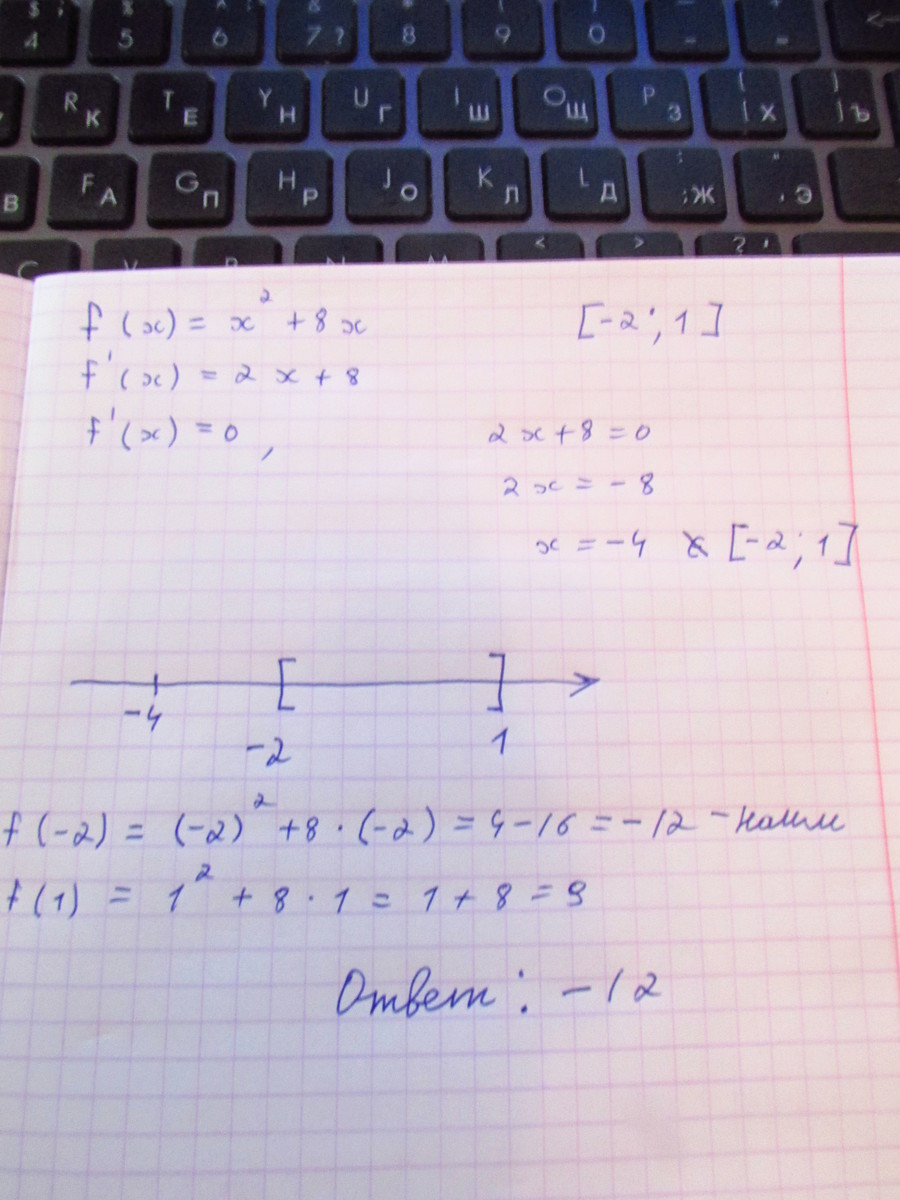 $ ; 4 % 5 ^ : 6 & 7 ? * 8 ( 9 ) 0 _ - + = <—
R К T Е Y Н U Г I Ш O Щ P З { [ Х } ] Ъ
В F А G П H Р J О K Л L Д : ; Ж " ' Э
< > ? ,
f (x) = x² + 8x [-2 ; 1]
f'(x) = 2x + 8
f'(x) = 0 , 2x + 8 = 0
2x = -8
x = -4 ∉ [-2 ; 1]
-4 -2 1
f(-2) = (-2)² + 8 · (-2) = 4 - 16 = -12 - наим
f(1) = 1² + 8 · 1 = 1 + 8 = 9
Ответ : -12